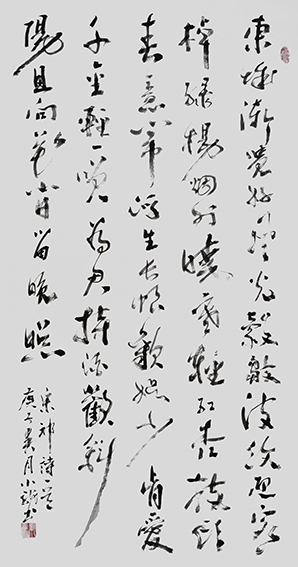 東城漸覺好風光縠皺波紋迎客
棹綠楊煙外曉寒輕紅杏枝頭
春意鬧浮生長恨歡娛少肯愛
千金輕一笑為君持酒勸斜
陽且向花間留晚照
宋祁詩一首
庚子 月小 書